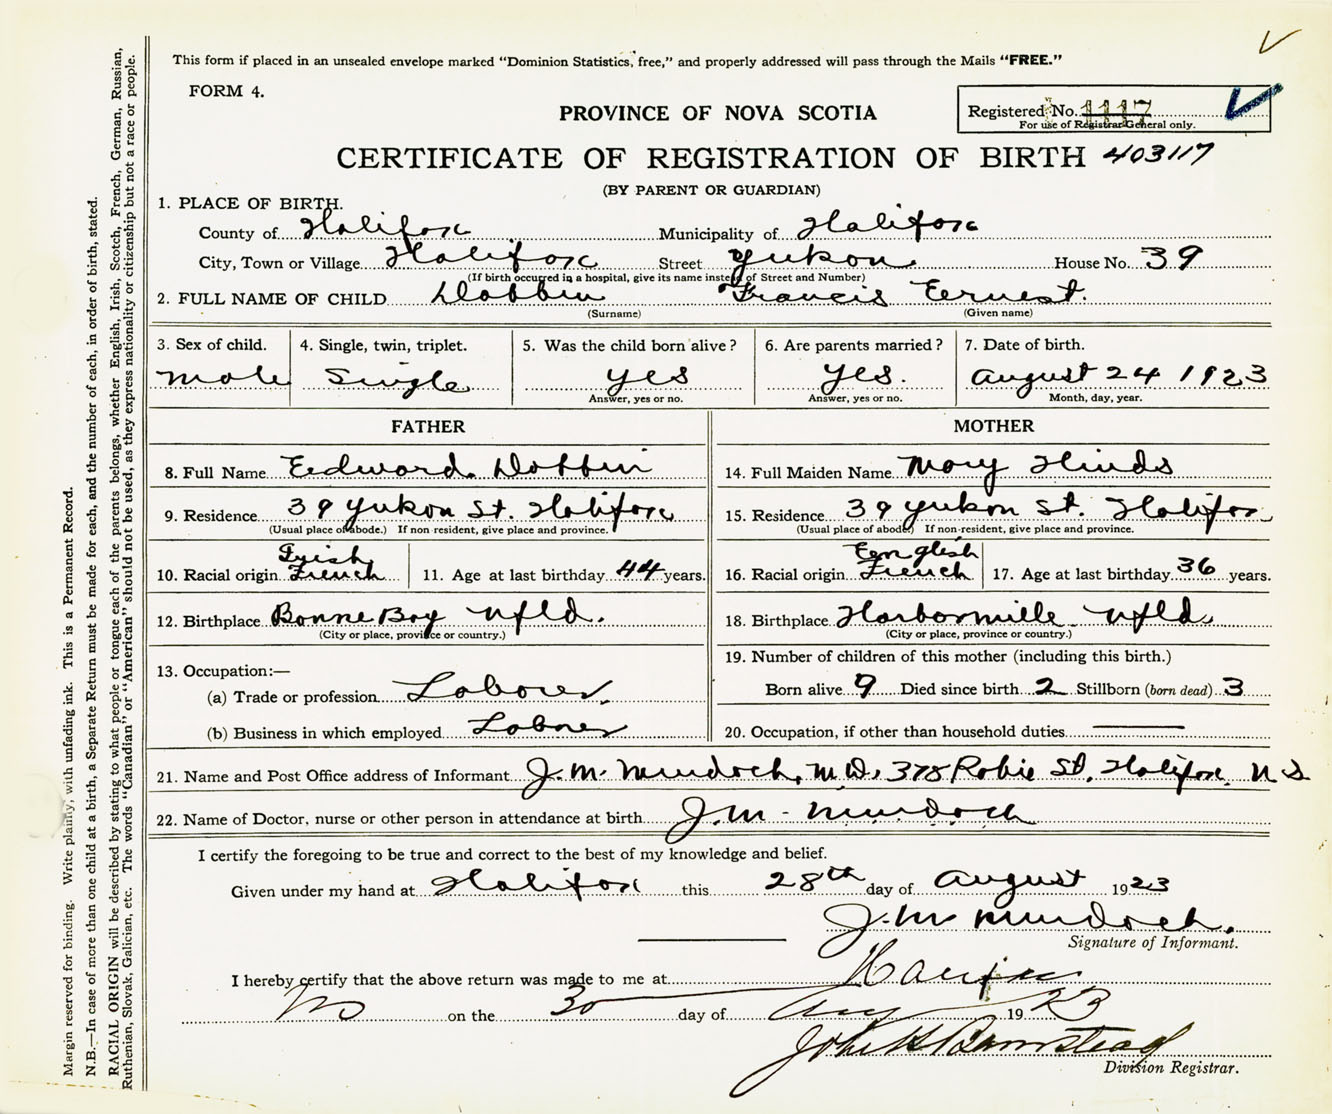 This form if placed in an unsealed envelope marked "Dominion Statistics, free," and properly addressed will pass through the Mails "FREE."
FORM 4.
PROVINCE OF NOVA SCOTIA
Registered No. 1117
For use of Registrar General only.
CERTIFICATE OF REGISTRATION OF BIRTH 403117
(BY PARENT OR GUARDIAN)
1. PLACE OF BIRTH.
County of Halifax Municipality of Halifax
City, Town or Village Halifax Street Yukon House No. 39
(If birth occurred in a hospital, give its name instead of Street and Number)
2. FULL NAME OF CHILD Dobbin Francis Eernest.
(Surname) (Given name)
3. Sex of child. 4. Single, twin, triplet. 5. Was the child born alive? 6. Are parents married? 7. Date of birth.
male Single yes yes. august 24 1923
Answer, yes or no. Answer, yes or no. Month, day, year.
FATHER MOTHER
8. Full Name Eedward Dobbin
9. Residence 39 Yukon St. Halifax
(Usual place of abode.) If non-resident, give place and province.
Irish
10. Racial origin French 11. Age at last birthday 44 years.
12. Birthplace Bonne Bay Nfld.
(City or place, province or country.)
13. Occupation:—
(a) Trade or profession Laborer
(b) Business in which employed Laborer
14. Full Maiden Name Mary Hinds
15. Residence 39 Yukon St. Halifax
(Usual place of abode.) If non-resident, give place and province.
Eenglish
16. Racial origin French 17. Age at last birthday 36 years.
18. Birthplace Harbormille Nfld.
(City or place, province or country.)
19. Number of children of this mother (including this birth.)
Born alive 9 Died since birth 2 Stillborn (born dead) 3
20. Occupation, if other than household duties
21. Name and Post Office address of Informant J. M. Murdoch, M.D., 378 Robie St, Halifax, N S
22. Name of Doctor, nurse or other person in attendance at birth J. M. Murdoch
I certify the foregoing to be true and correct to the best of my knowledge and belief.
Given under my hand at Halifax this 28th day of august 1923
J. M Murdoch.
Signature of Informant.
I hereby certify that the above return was made to me at Halifax
NS on the 30 day of Aug 1923
John H Barnstead
Division Registrar.
Margin reserved for binding. Write plainly, with unfading ink. This is a Permanent Record.
N.B.—In case of more than one child at a birth, a Separate Return must be made for each, and the number of each, in order of birth, stated.
RACIAL ORIGIN will be described by stating to what people or tongue each of the parents belongs, whether English, Irish, Scotch, French, German, Russian,
Ruthenian, Slovak, Galician, etc. The words "Canadian" or "American" should not be used, as they express nationality or citizenship but not a race or people.